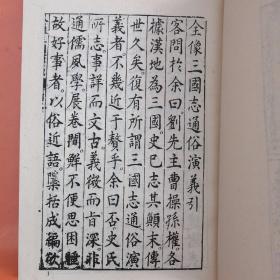 全像三國志通俗演義引
客問於余曰劉先主曹操孫權各
據漢地為三國史已志其顛末傳
世久矣復有所謂三國志通俗演
義者不幾近於贅乎余曰否史氏
所志事詳而文古義微而旨深非
通儒夙學展卷間鮮不便思困睡
故好事者以俗近語檃括成編欲